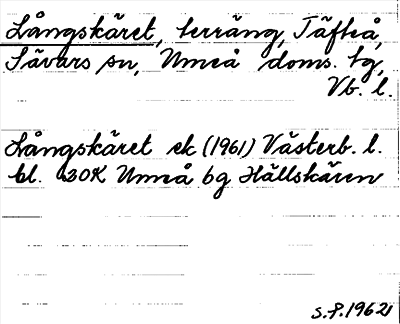 Långskäret, terräng, Täfteå,
Sävars sn, Umeå doms. tg,
Vb. l.
Långskäret ek (1961) Västerb. l.
bl. 20K Umeå bg Hällskären
S.P. 1962